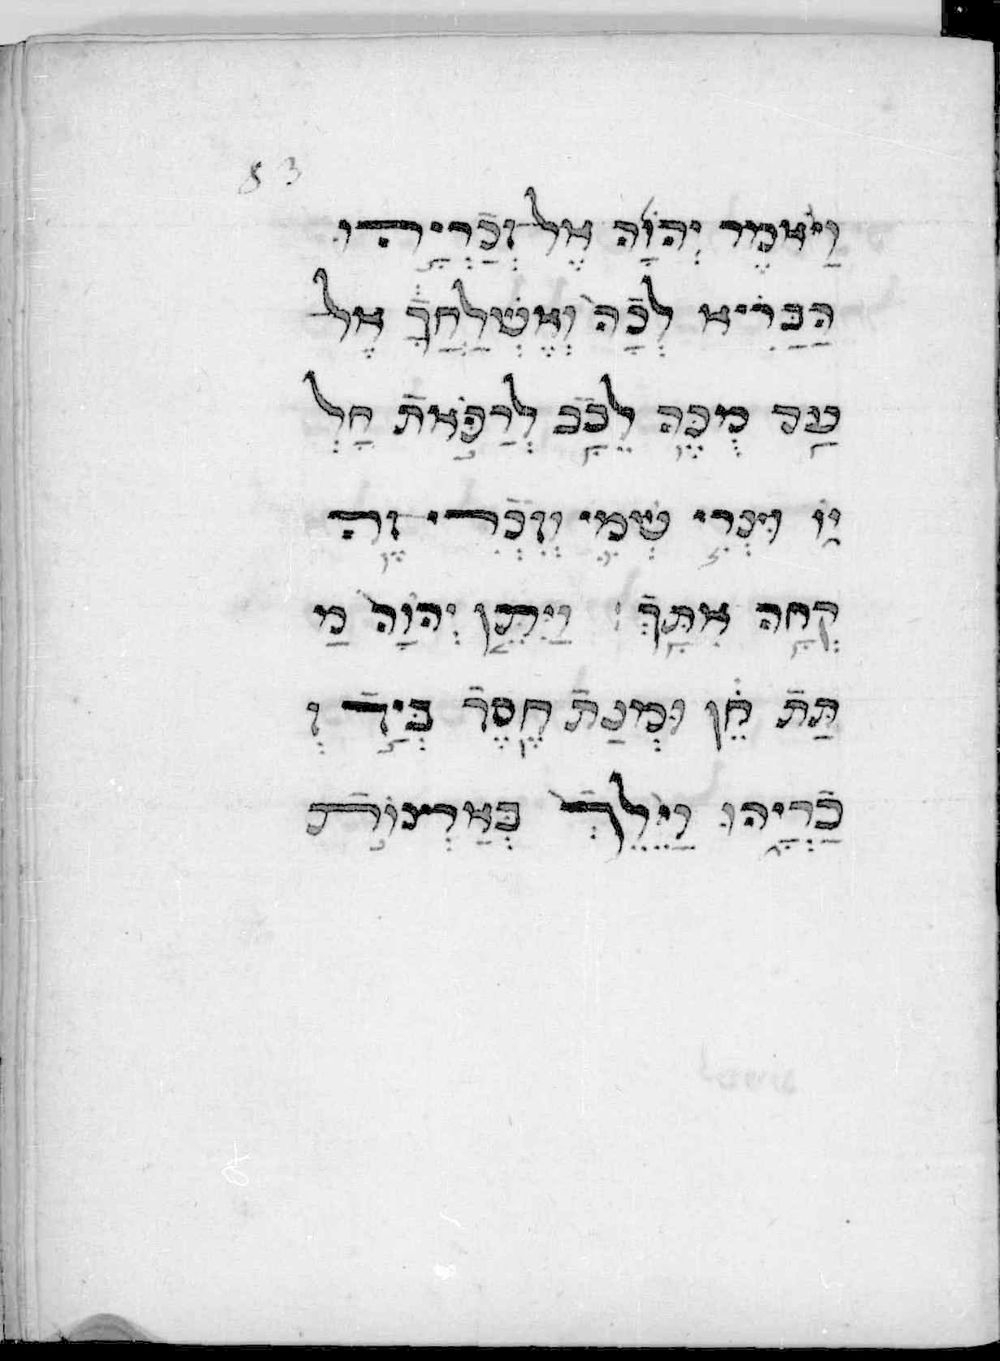 83
וַיֹּאמֶר יְהוָֹה אֶל זְכַרְיָהוּ
הַבָּרִיא לְכָה וְאֶשְׁלַחֲךָ אֶל
עַד מְכֶה לֵבָב לְרַפֹּאת חָלְ
יוֹ וּנְרִי שְׁמִי וְזִכְרִי זֶה
קְחָה אִתָּךְ וַיִּתֵּן יְהוָה מַ
תַּת חֵן וּמְנַת חֶסֶר בְּיַד זְ
כַרְיָהוּ וַיֵּלֶךְ בְּאַרְצוֹת